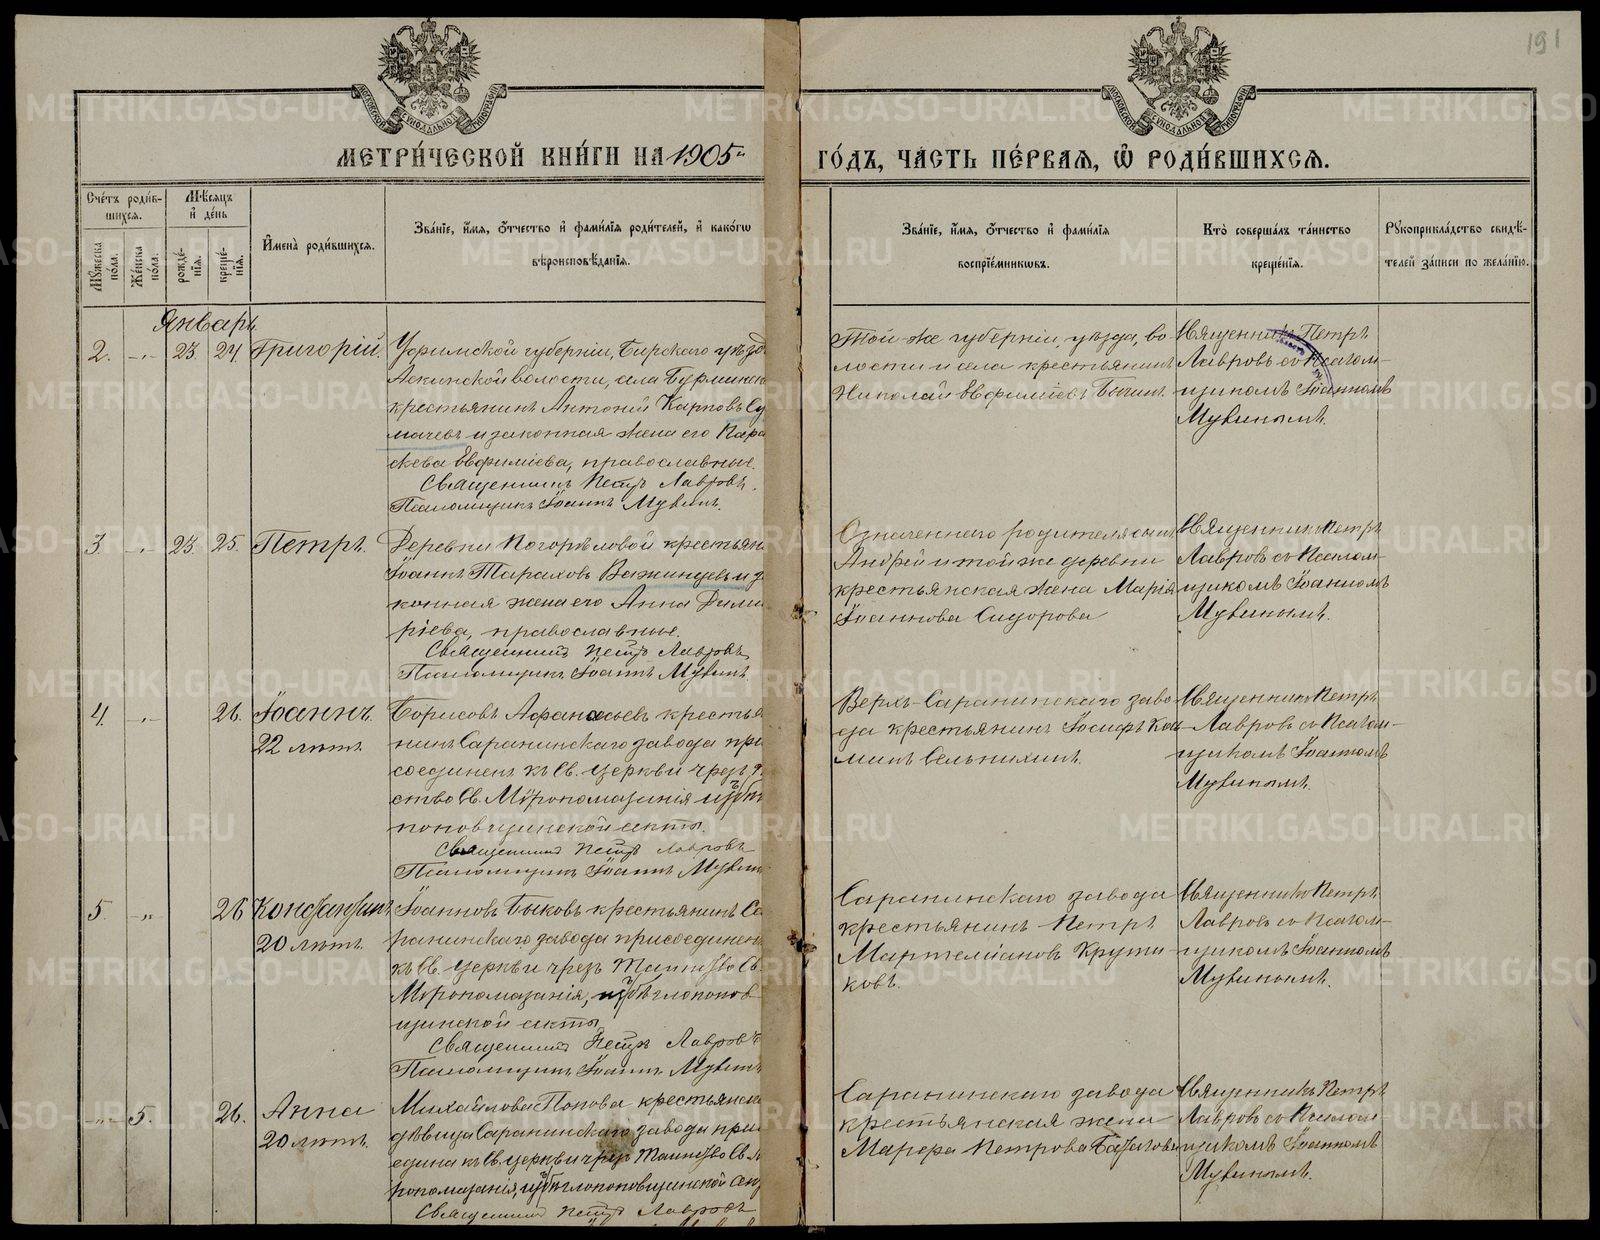 191
МЕТРИ́ЧЕСКОЙ КНИ́ГИ НА 1905й
ГО́ДЪ, ЧА́СТЬ ПЕ́РВАЯ, Ѡ҆ РОДИ́ВШИХСЯ.
Сче́тъ роди́в-
шихся.
Мѣ́сяцъ
и҆ де́нь
Му́жеска по́ла.
Же́нска по́ла.
рожде́-
нїя.
креще́-
нїя.
И҆мена̀ роди́вшихся.
Зва́нїе, и҆́мя, ѻ҆́тчество и҆ фами́лїя роди́телей, и҆ како́гѡ
вѣроисповѣ́данїя.
Зва́нїе, и҆́мя, ѻ҆́тчество и҆ фами́лїя
воспрїе́мниковъ.
Кто̀ соверша́лъ та́инство
креще́нїя.
Рукоприкла́дство свидѣ́-
телей за́писи по жела́нїю.
Январь
2. -„- 23 24 Григорій.
Уфимской губерніи, Бирскаго уѣзд
Аскинской волости, села Бурминск
крестьянинъ Антоній Карповъ Су
мачевъ и законная жена его Пара
скева Евфиміева, православные.
Священникъ Петръ Лавровъ.
Псаломщикъ Іоаннъ Мувинъ.
Той-же губерніи, уѣзда, во
лости и села крестьянинъ
Николай Евфиміевъ
Священникъ Петръ
Лавровъ съ Псалом-
щикомъ Іоанномъ
Мувинымъ.
3 -„- 23 25. Петръ.
Деревни Погорѣловой крестьян
Іоаннъ Тараховъ Важинцевъ и за
конная жена его Анна Дими
ріева, православные.
Священникъ Петръ Лавровъ
Псаломщикъ Іоаннъ Мувинъ
Означеннаго родителя сынъ
Андрей и той же деревни
крестьянская жена Марія
Іоаннова Сидорова
Священникъ Петръ
Лавровъ съ Псалом-
щикомъ Іоанномъ
Мувинымъ.
4. -„- 26. Іоаннъ.
22 лѣтъ
Борисовъ Афанасьевъ крестья
нинъ Саранинскаго завода при
соединенъ къ Св. церкви чрезъ
ство Св. Мѵропомазанія изъ бѣгл
поповщинской секты.
Священникъ Петръ Лавровъ
Псаломщикъ Іоаннъ Мувин
Верхъ-Саранинскаго заво
да крестьянинъ Іосифъ Коз
минъ Сельнихинъ.
Священникъ Петръ
Лавровъ съ Псалом-
щикомъ Іоанномъ
Мувинымъ.
5. -„- 26 Константинъ
20 лѣтъ.
Іоанновъ Быковъ крестьянинъ Са
ранинскаго завода присоединенъ
къ Св. церкви чрезъ Таинство Св.
Мѵропомазанія, изъ бѣглопопов
щинской секты
Священникъ Петръ Лавровъ
Псаломщикъ Іоаннъ Мувинъ
Саранинскаго завода
крестьянинъ Петръ
Мартеміановъ Крути-
ковъ.
Священникъ Петръ
Лавровъ съ Псалом-
щикомъ Іоанномъ
Мувинымъ.
-„- 5. 26. Анна
20 лѣтъ.
Михайлова Попова крестьянска
дѣвица Саранинскаго завода прис
единa къ Св. церкви чрезъ Таинство Св. М
ропомазанія, изъ бѣглопоповщинской сек
Священникъ Петръ Лавровъ
Саранинскаго завода
крестьянская жена
Марфа Петрова
Священникъ Петръ
Лавровъ съ Псалом-
щикомъ Іоанномъ
Мувинымъ.
METRIKI.GASO-URAL.RU